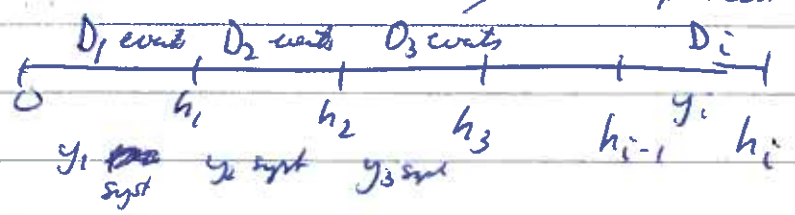 D₁ events D₂ events D₃ events Dᵢ
0 h₁ h₂ h₃ hᵢ₋₁ yᵢ hᵢ
y₁ syst y₂ syst y₃ syst